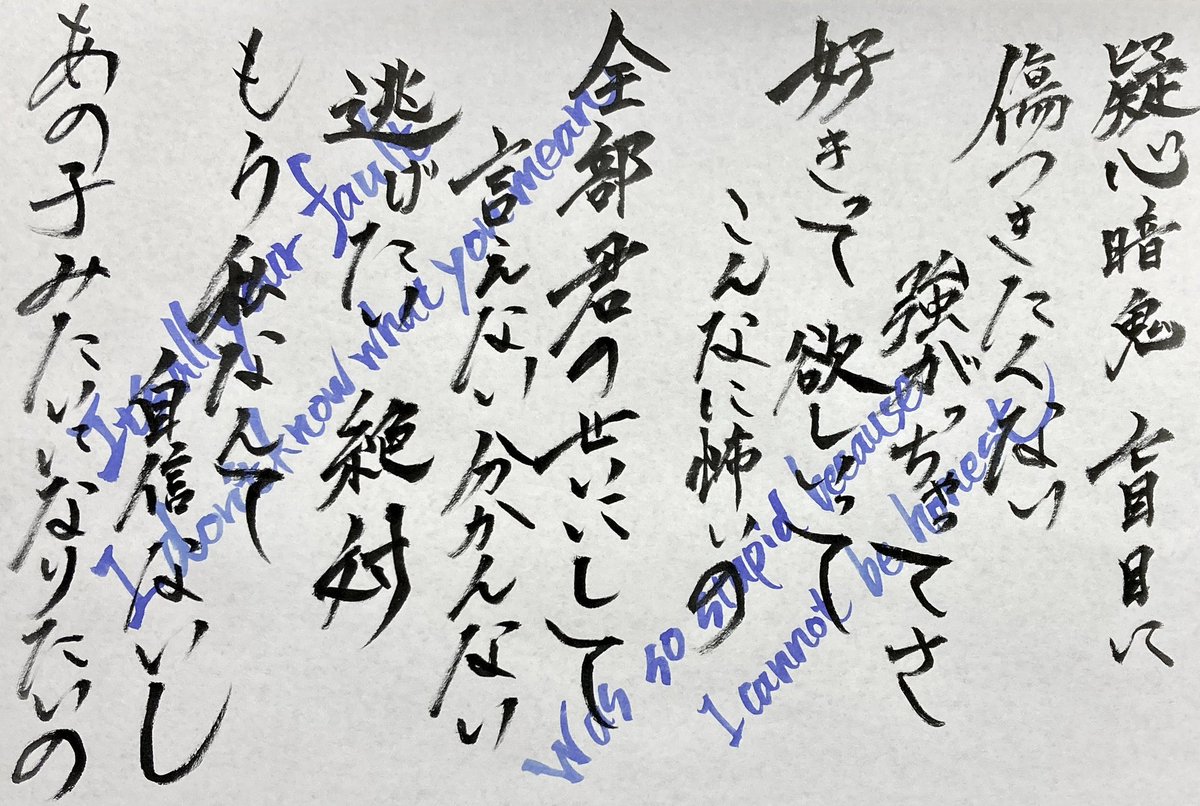 疑心暗鬼 盲目に
傷つきたくない
強がっちゃってさ
好きって 欲しくって
こんなに怖いの
全部君の せいにして
言えない 分かんない
逃げたい 絶対
もう私なんて
自信ないし
あの子みたいになりたいの
It's all your fault
I don't know what you mean
Was so stupid because
I cannot be honest